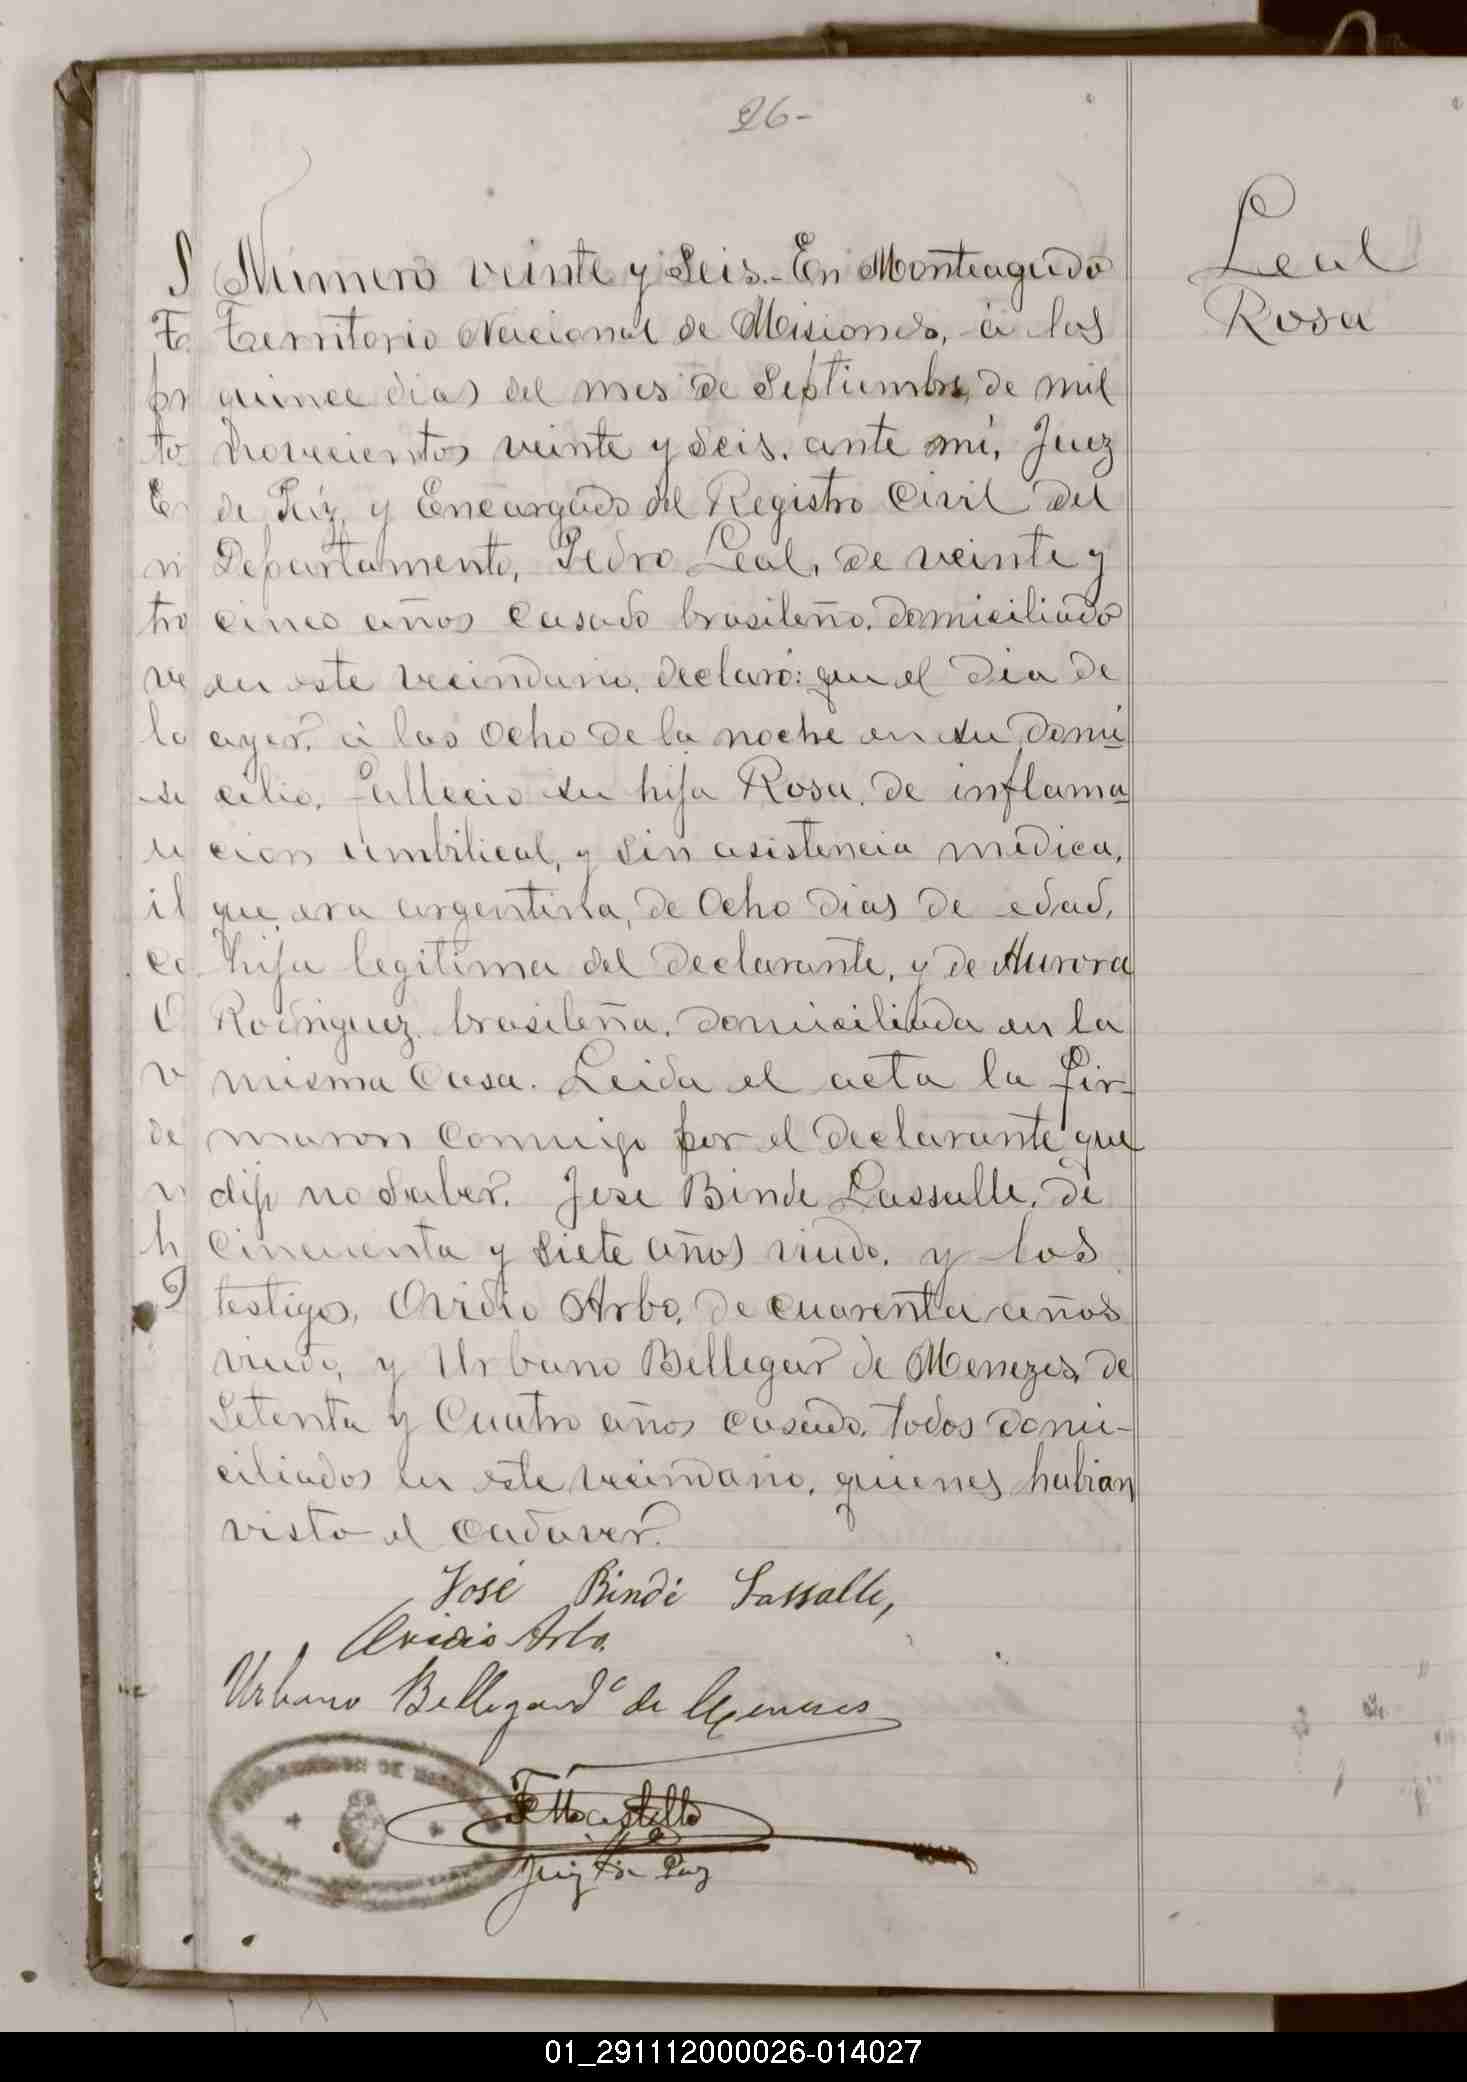 26-
Leal
Rosa
Número veinte y Seis.- En Monteagudo
Territorio Nacional de Misiones, á los
quince dias del mes de Septiembre, de mil
novecientos veinte y seis. ante mí, Juez
de Páz, y Encargado del Registro Civil del
Departamento, Pedro Leal, de veinte y
cinco años casado brasileño, domiciliado
en este vecindario, declaró: que el dia de
ayer, á las ocho de la noche en su domi
cilio, fallecio su hija Rosa, de inflama
cion umbilical, y sin asistencia medica,
que era argentina, de ocho dias de edad,
hija legitima del declarante, y de Aurora
Rodriguez brasileña, domiciliada en la
misma casa. Leida el acta la fir-
maron conmigo por el declarante que
dijo no saber. José Bindé Lassalle, de
cincuenta y siete años viudo, y los
testigos, Ovidio Arbo, de cuarenta años
viudo, y Urbano Bellegar de Menezes, de
Setenta y Cuatro años casado, todos domi-
ciliados en este vecindario, quienes habian
visto el cadaver.
José Bindé Lassalle,
Ovidio Arbo.
Urbano Bellegard de Menezes
Juez de Paz
01_291112000026-014027